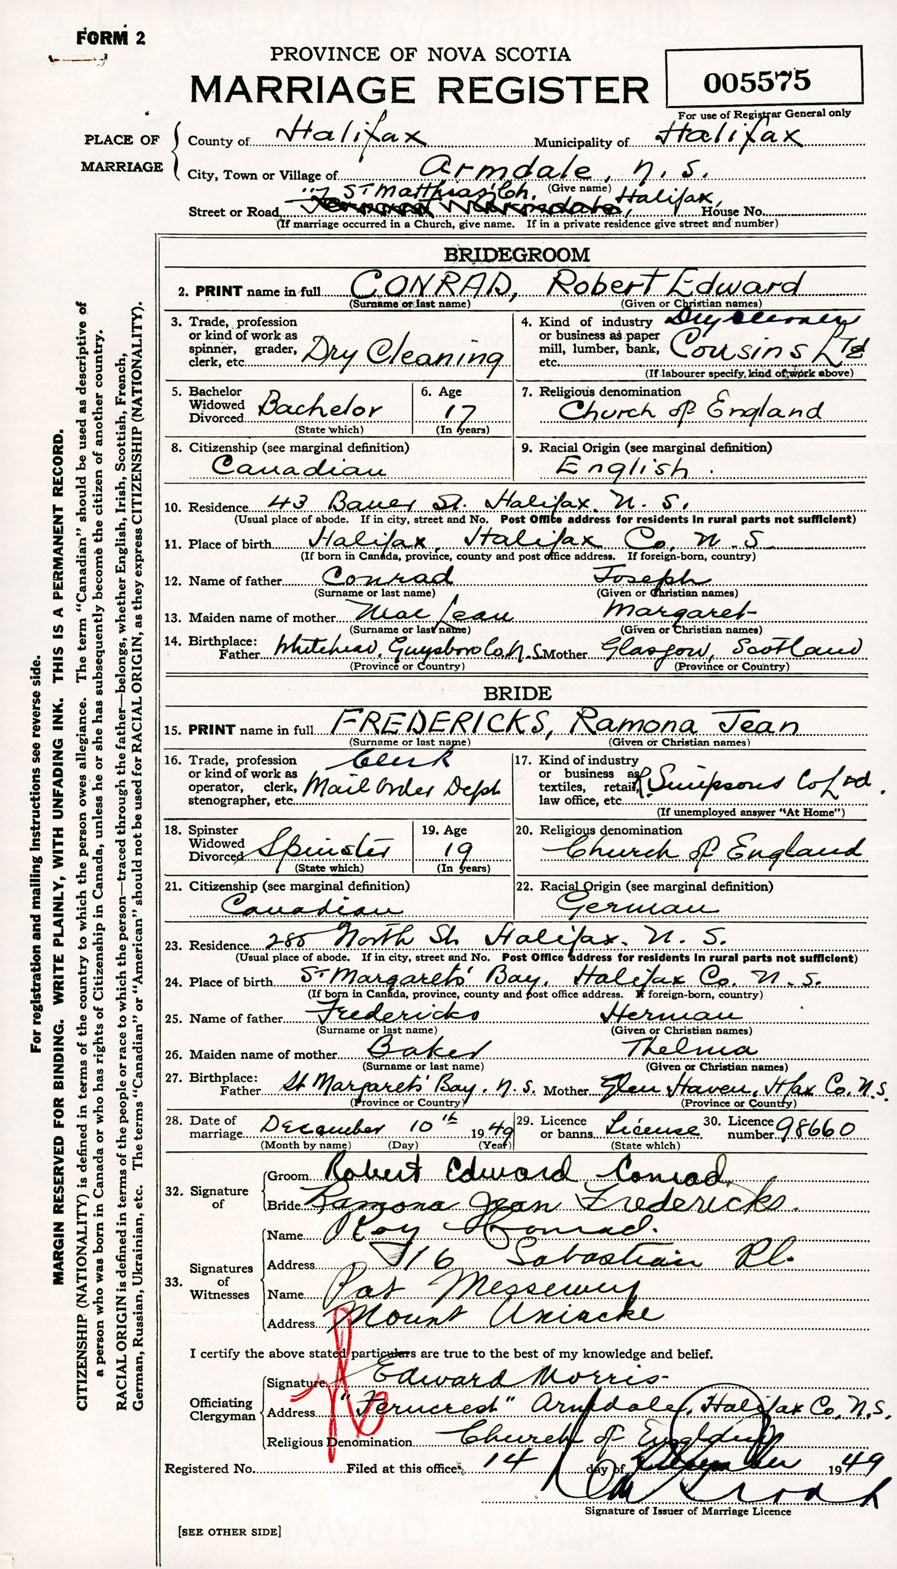 FORM 2
PROVINCE OF NOVA SCOTIA
MARRIAGE REGISTER
005575
For use of Registrar General only
PLACE OF MARRIAGE
County of Halifax Municipality of Halifax
City, Town or Village of Armdale, N. S.
St Matthias' Ch. (Give name) Halifax,
Street or Road House No.
(If marriage occurred in a Church, give name. If in a private residence give street and number)
BRIDEGROOM
2. PRINT name in full CONRAD, Robert Edward
(Surname or last name) (Given or Christian names)
3. Trade, profession or kind of work as spinner, grader, clerk, etc. Dry Cleaning
4. Kind of industry or business as paper mill, lumber, bank, etc. Dry Cleaners Cousins Ltd
(If labourer specify, kind of work above)
5. Bachelor Widowed Divorced Bachelor
(State which)
6. Age 17
(In years)
7. Religious denomination
Church of England
8. Citizenship (see marginal definition)
Canadian
9. Racial Origin (see marginal definition)
English.
10. Residence 43 Bauer St. Halifax. N. S.
(Usual place of abode. If in city, street and No. Post Office address for residents in rural parts not sufficient)
11. Place of birth Halifax, Halifax Co. N. S.
(If born in Canada, province, county and post office address. If foreign-born, country)
12. Name of father Conrad Joseph
(Surname or last name) (Given or Christian names)
13. Maiden name of mother Mac Lean Margaret
(Surname or last name) (Given or Christian names)
14. Birthplace: Father Whitehead, Guysboro Co. N. S. Mother Glasgow, Scotland
(Province or Country) (Province or Country)
BRIDE
15. PRINT name in full FREDERICKS, Ramona Jean
(Surname or last name) (Given or Christian names)
16. Trade, profession or kind of work as operator, clerk, stenographer, etc. Clerk Mail Order Dept
17. Kind of industry or business as textiles, retail, law office, etc. R. Simpsons Co Ltd.
(If unemployed answer "At Home")
18. Spinster Widowed Divorced Spinster
(State which)
19. Age 19
(In years)
20. Religious denomination
Church of England
21. Citizenship (see marginal definition)
Canadian
22. Racial Origin (see marginal definition)
German
23. Residence 285 North St. Halifax. N. S.
(Usual place of abode. If in city, street and No. Post Office address for residents in rural parts not sufficient)
24. Place of birth St Margarets' Bay, Halifax Co. N. S.
(If born in Canada, province, county and post office address. If foreign-born, country)
25. Name of father Fredericks Herman
(Surname or last name) (Given or Christian names)
26. Maiden name of mother Baker Thelma
(Surname or last name) (Given or Christian names)
27. Birthplace: Father St Margarets' Bay. N. S. Mother Glen Haven, Hfax Co. N. S.
(Province or Country) (Province or Country)
28. Date of marriage December 10th 1949
(Month by name) (Day) (Year)
29. Licence or banns License
(State which)
30. Licence number 98660
32. Signature of
Groom Robert Edward Conrad
Bride Ramona Jean Fredericks.
33. Signatures of Witnesses
Name Roy Conrad.
Address 716 Sabastian Pl.
Name Pat Messewy
Address Mount Uniacke
I certify the above stated particulars are true to the best of my knowledge and belief.
Officiating Clergyman
Signature Edward Morris
Address "Ferncrest" Armdale, Halifax Co. N. S.
Religious Denomination Church of England
Registered No. Filed at this office 14 day of December 1949
Signature of Issuer of Marriage Licence
[SEE OTHER SIDE]
For registration and mailing instructions see reverse side.
MARGIN RESERVED FOR BINDING. WRITE PLAINLY, WITH UNFADING INK. THIS IS A PERMANENT RECORD.
CITIZENSHIP (NATIONALITY) is defined in terms of the country to which the person owes allegiance. The term "Canadian" should be used as descriptive of
a person who was born in Canada or who has rights of Citizenship in Canada, unless he or she has subsequently become the citizen of another country.
RACIAL ORIGIN is defined in terms of the people or race to which the person—traced through the father—belongs, whether English, Irish, Scottish, French,
German, Russian, Ukrainian, etc. The terms "Canadian" or "American" should not be used for RACIAL ORIGIN, as they express CITIZENSHIP (NATIONALITY).